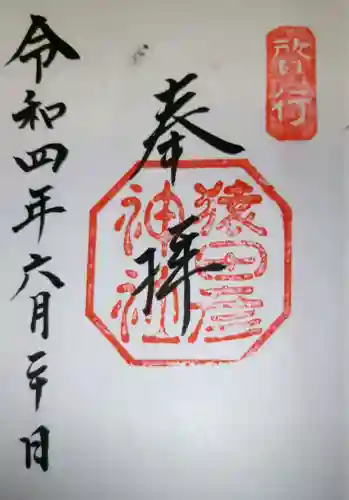 啓行
奉拝
猿田彦
神社
令和四年六月二十日